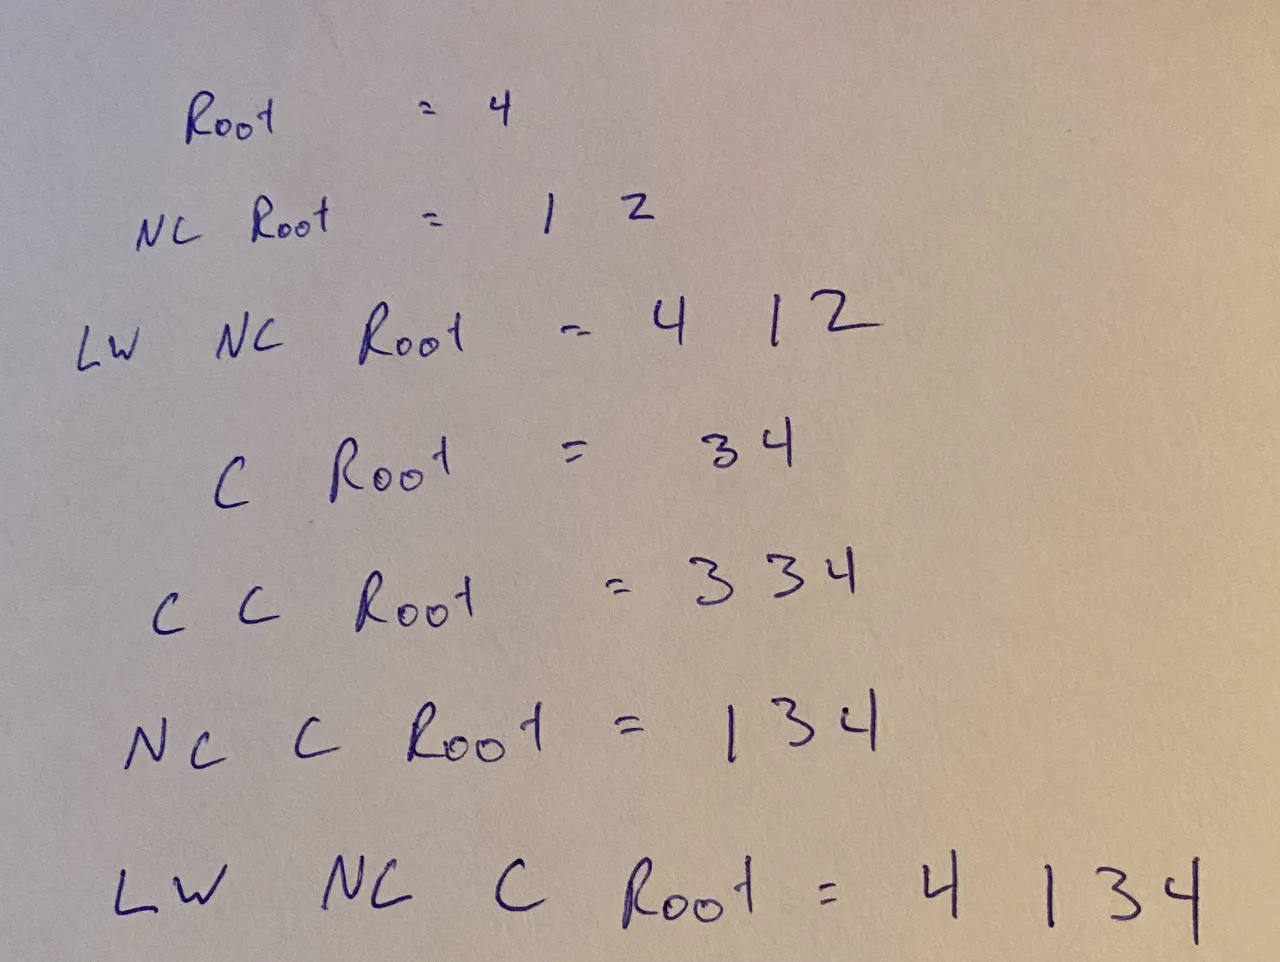 Root = 4
NC Root = 1 2
LW NC Root = 4 1 2
C Root = 3 4
C C Root = 3 3 4
NC C Root = 1 3 4
LW NC C Root = 4 1 3 4